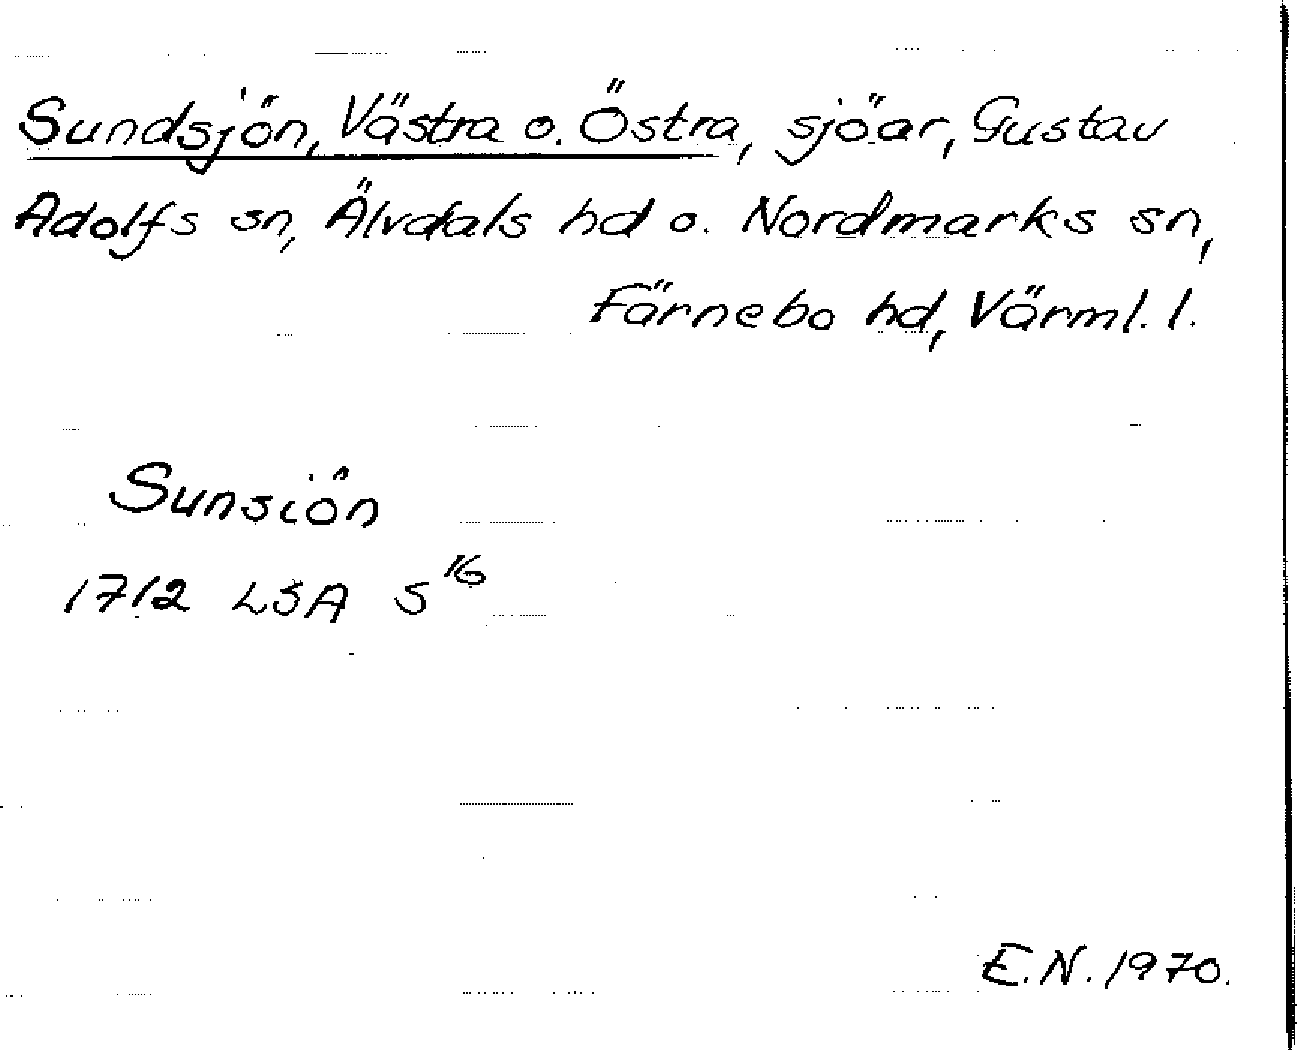 Sundsjön, Västra o. Östra, sjöar, Gustav
Adolfs sn, Älvdals hd o. Nordmarks sn,
Färnebo hd, Värml. l.
Sunsiön
1712 LSA S¹⁶
E.N. 1970.